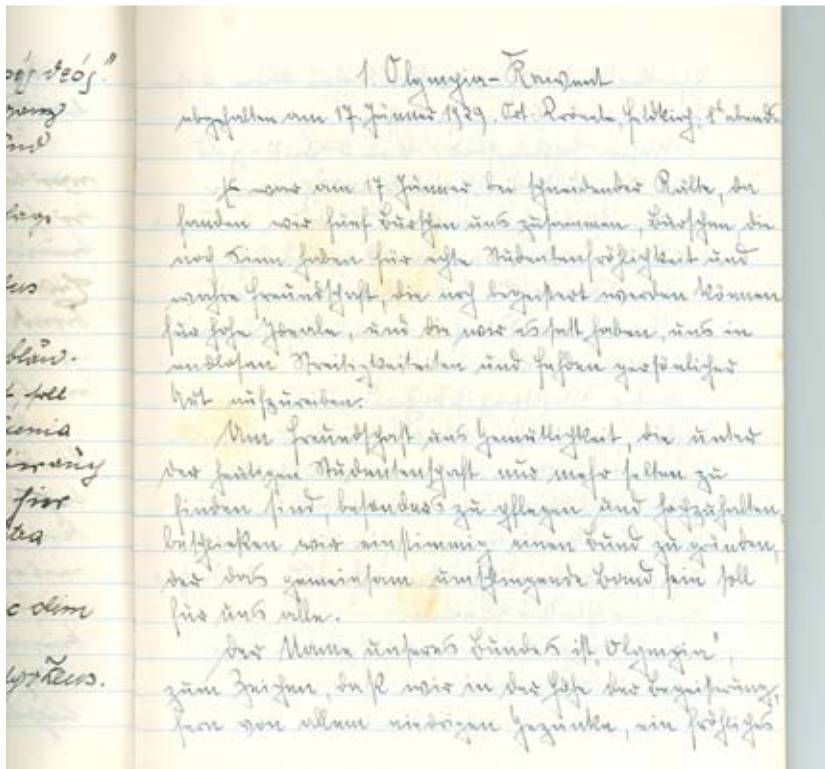 ός θεός."
ganz
und
lus
blau-
t, soll
tonia
hier auch
hier
c dem
1. Olympia-Konvent
abgehalten am 17. Jänner 1929. Ort: Feldkirch, abends
Es war am 17 Jänner bei schneidender Kälte, da
fanden wir fünf Burschen uns zusammen, Burschen, die
noch Sinn haben für echte Studentenfröhlichkeit und
wahre Freundschaft, die noch begeistert werden können
für hohe Ideale, und die wir es satt haben, uns in
endlosen Streitigkeiteiten und Fehden persönlicher
Art aufzureiben.
Um Freundschaft und Gemütlichkeit, die unter
der heutigen Studentenschaft nur mehr selten zu
finden sind, besonders zu pflegen und hochzuhalten,
beschließen wir einstimmig einen Bund zu gründen,
der das gemeinsam umschlingende Band sein soll
für uns alle.
Der Name unseres Bundes ist „Olympia",
zum Zeichen, daß wir in der Höhe der Begeisterung,
fern von allem niedrigen Gezänke, ein fröhliches